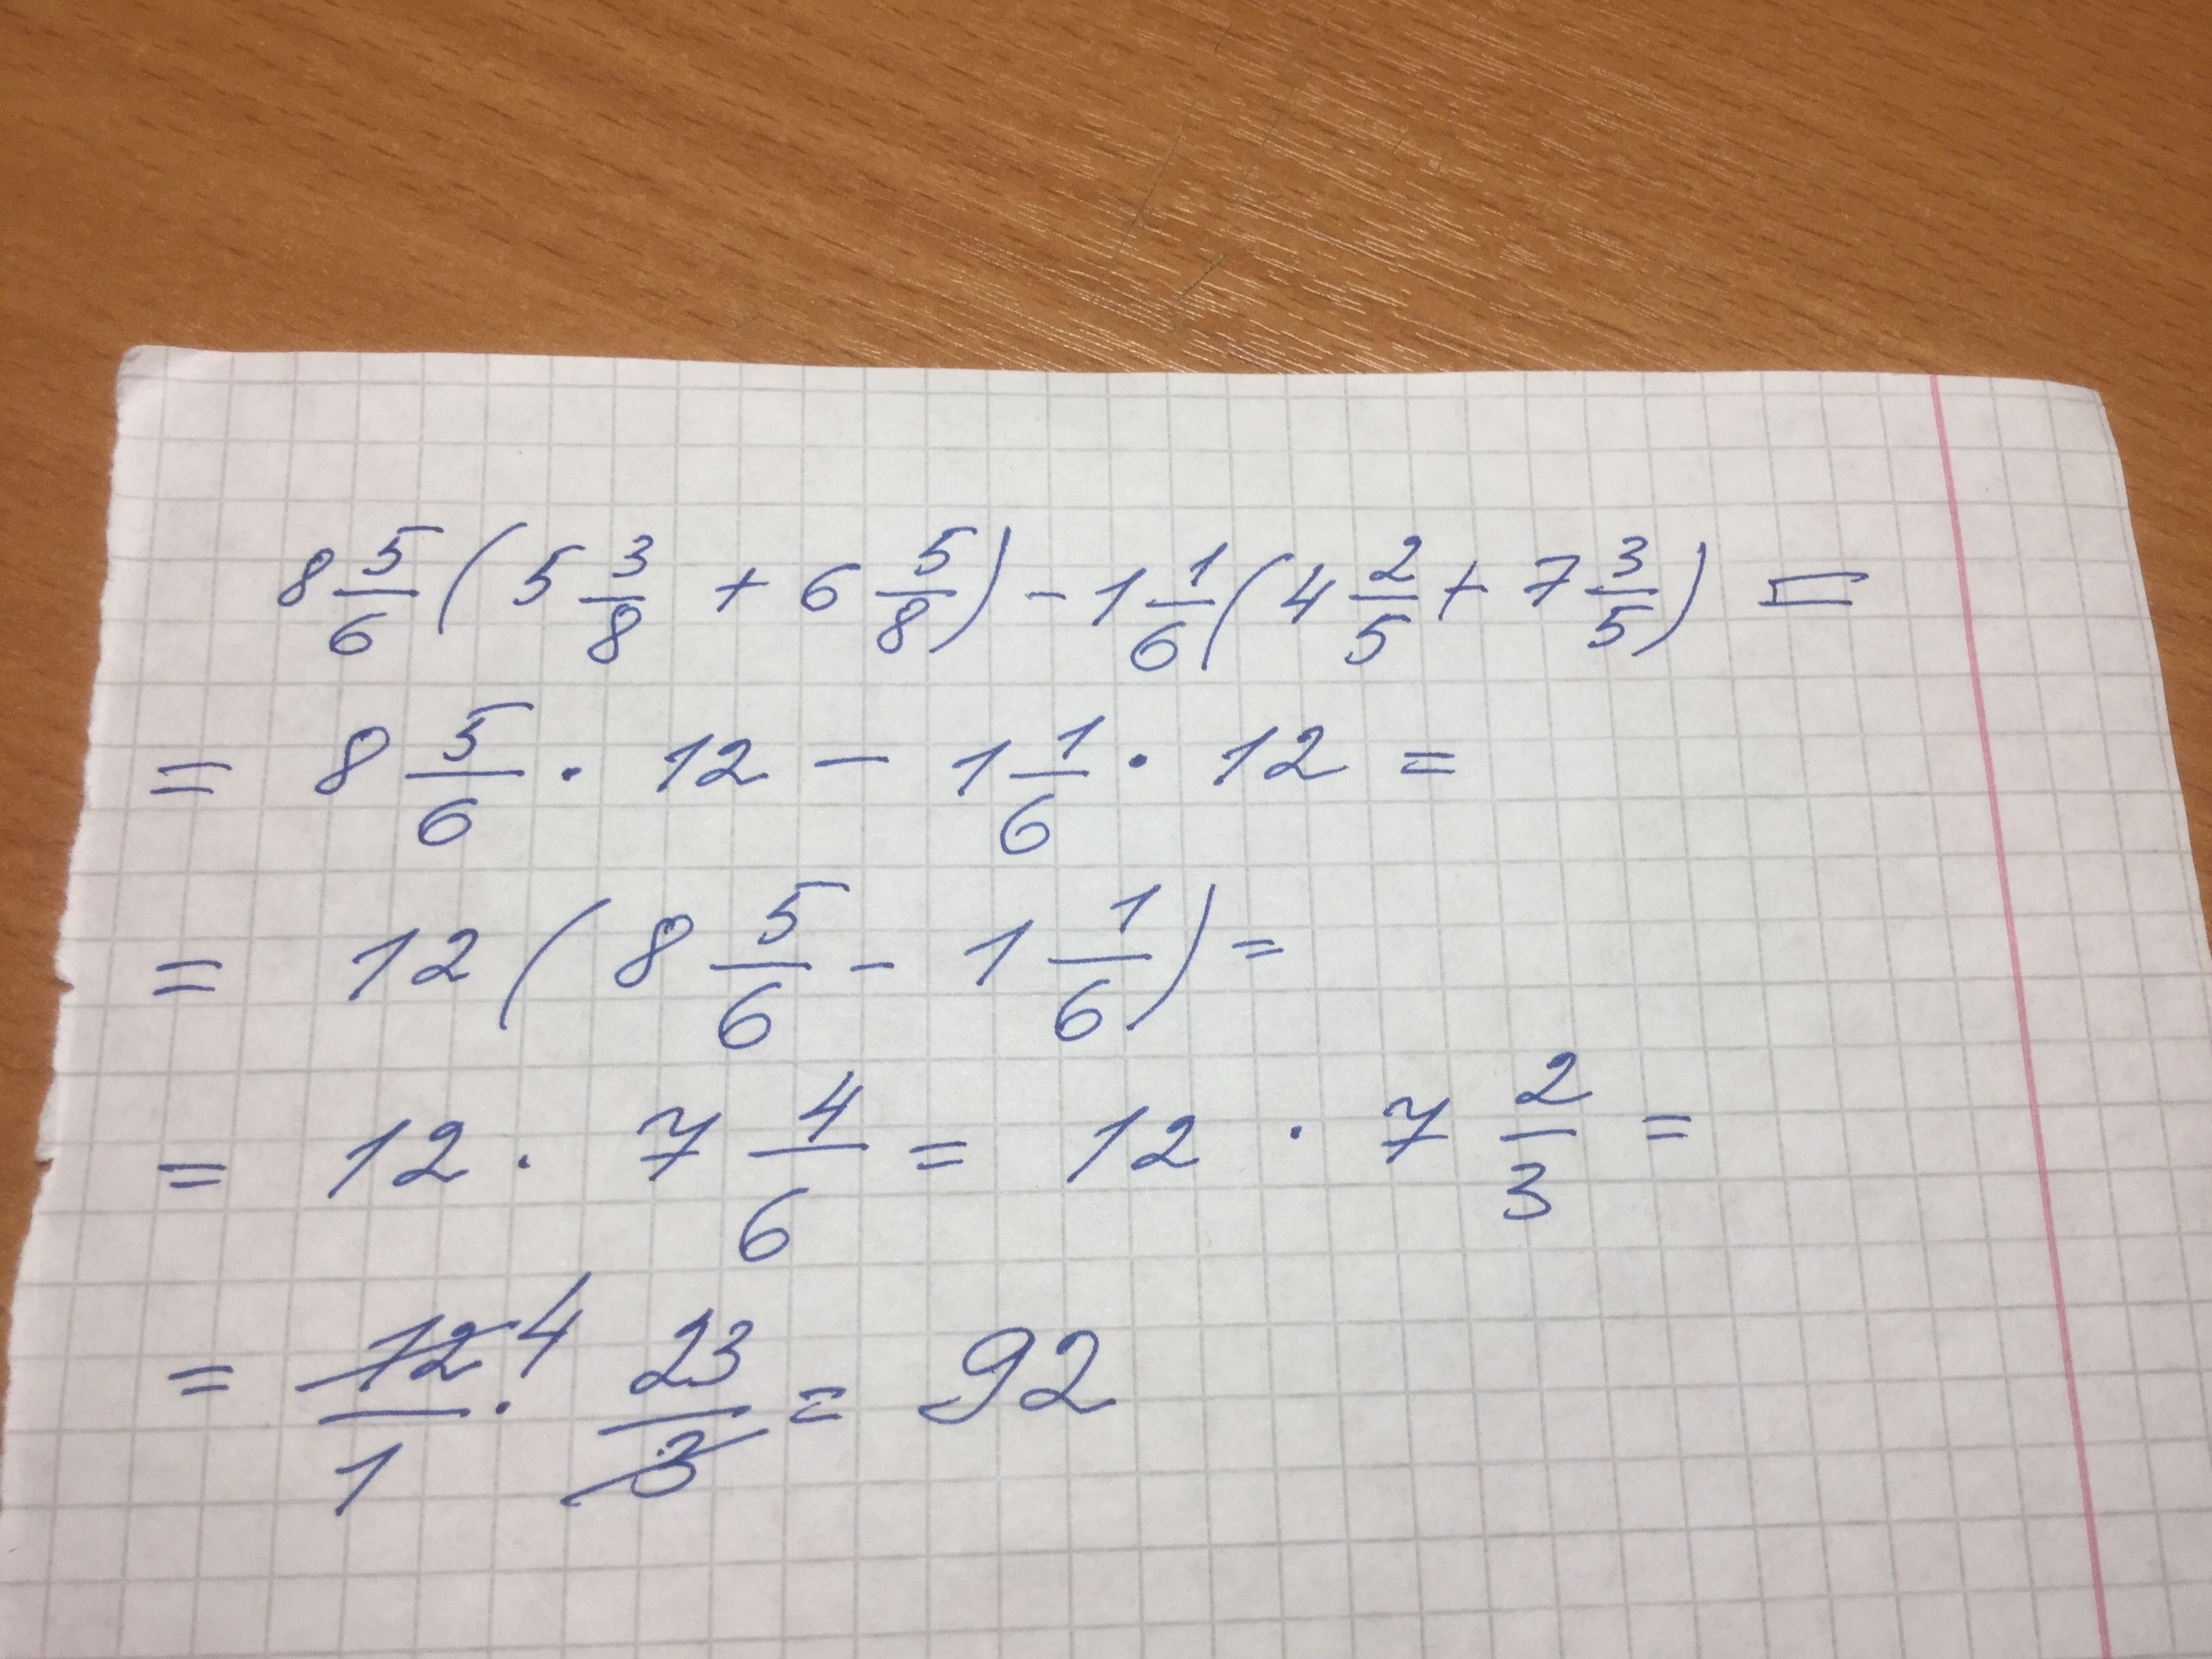 8 5/6 (5 3/8 + 6 5/8) - 1 1/6 (4 2/5 + 7 3/5) =
= 8 5/6 · 12 - 1 1/6 · 12 =
= 12 (8 5/6 - 1 1/6) =
= 12 · 7 4/6 = 12 · 7 2/3 =
= 12 4/1 · 23/3 = 92